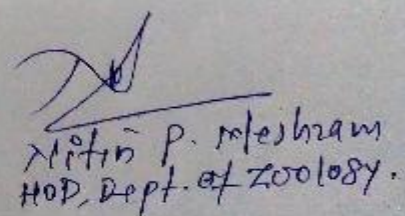 Nitin P. Meshram
HOD, Dept. of Zoology.